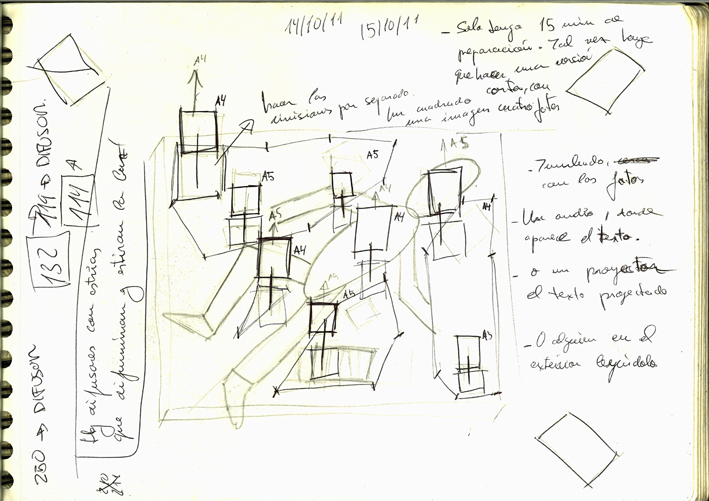 14/10/11
15/10/11
- Solo tengo 15 min de
preparación. Tal vez tenga
que hacer una versión
corta, con
un cuadrado
una imagen cuatro fotos
hacer las
divisiones por separado.
- Tumbado,
con las fotos
- Un audio, donde
aparece el texto.
- o un proyector
el texto proyectado
- O alguien en el
exterior leyéndolo
A4
A4
A5
A5
A5
A4
A4
A5
A5
A4
A5
A5
250 → DIFUSOR
132
119 → DIFUSOR.
114
Hay difusores con estrías
que difuminan y estiran la luz